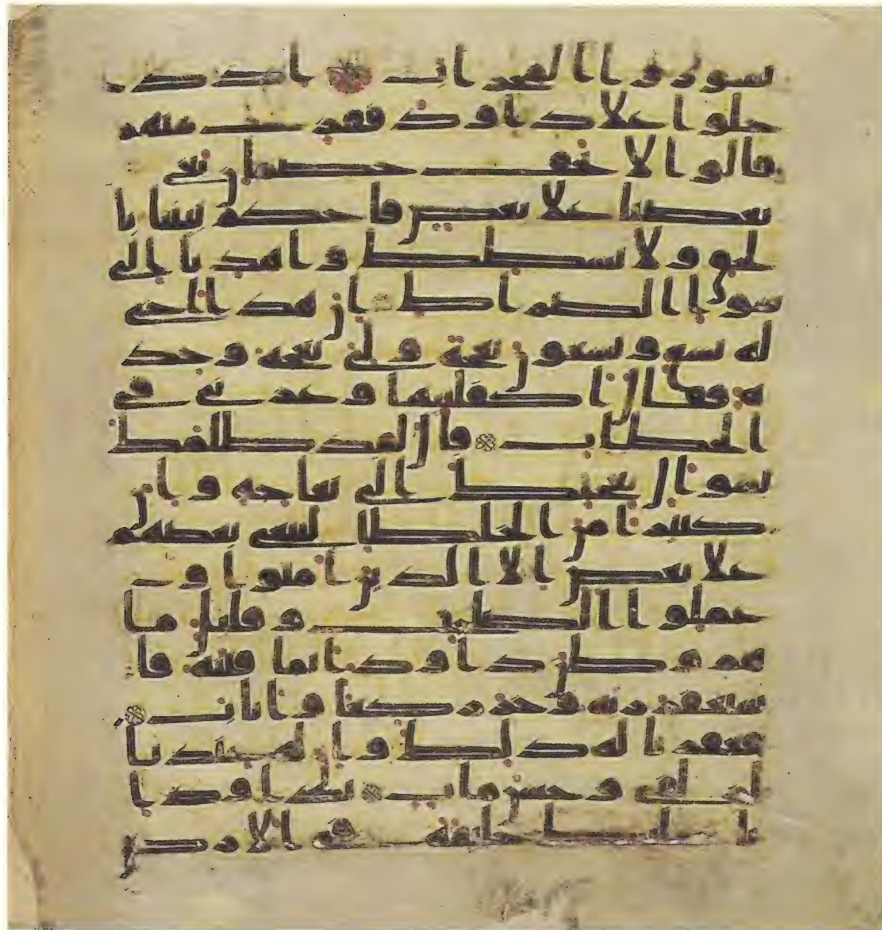 سوروا المحراب اذ د
خلوا على داود ففزع منهم
قالوا لا تخف خصمان بغى
بعضنا على بعض فاحكم بيننا با
لحق ولا تشطط واهدنا الى
سوا الصراط ان هذا اخى
له تسع وتسعون نعجة ولى نعجة وحد
ة فقال اكفلنيها وعزنى فى
الخطاب قال لقد ظلمك
بسوال نعجتك الى نعاجه وان
كثيرا من الخلطا ليبغى بعضهم
على بعض الا الذين امنوا و
عملوا الصلحت وقليل ما
هم وظن داود انما فتنه فا
ستغفر ربه وخر ركعا واناب
فغفرنا له ذلك وان له عندنا
لزلفى وحسن ماب يداود ا
نا جعلنك خليفة فى الارض